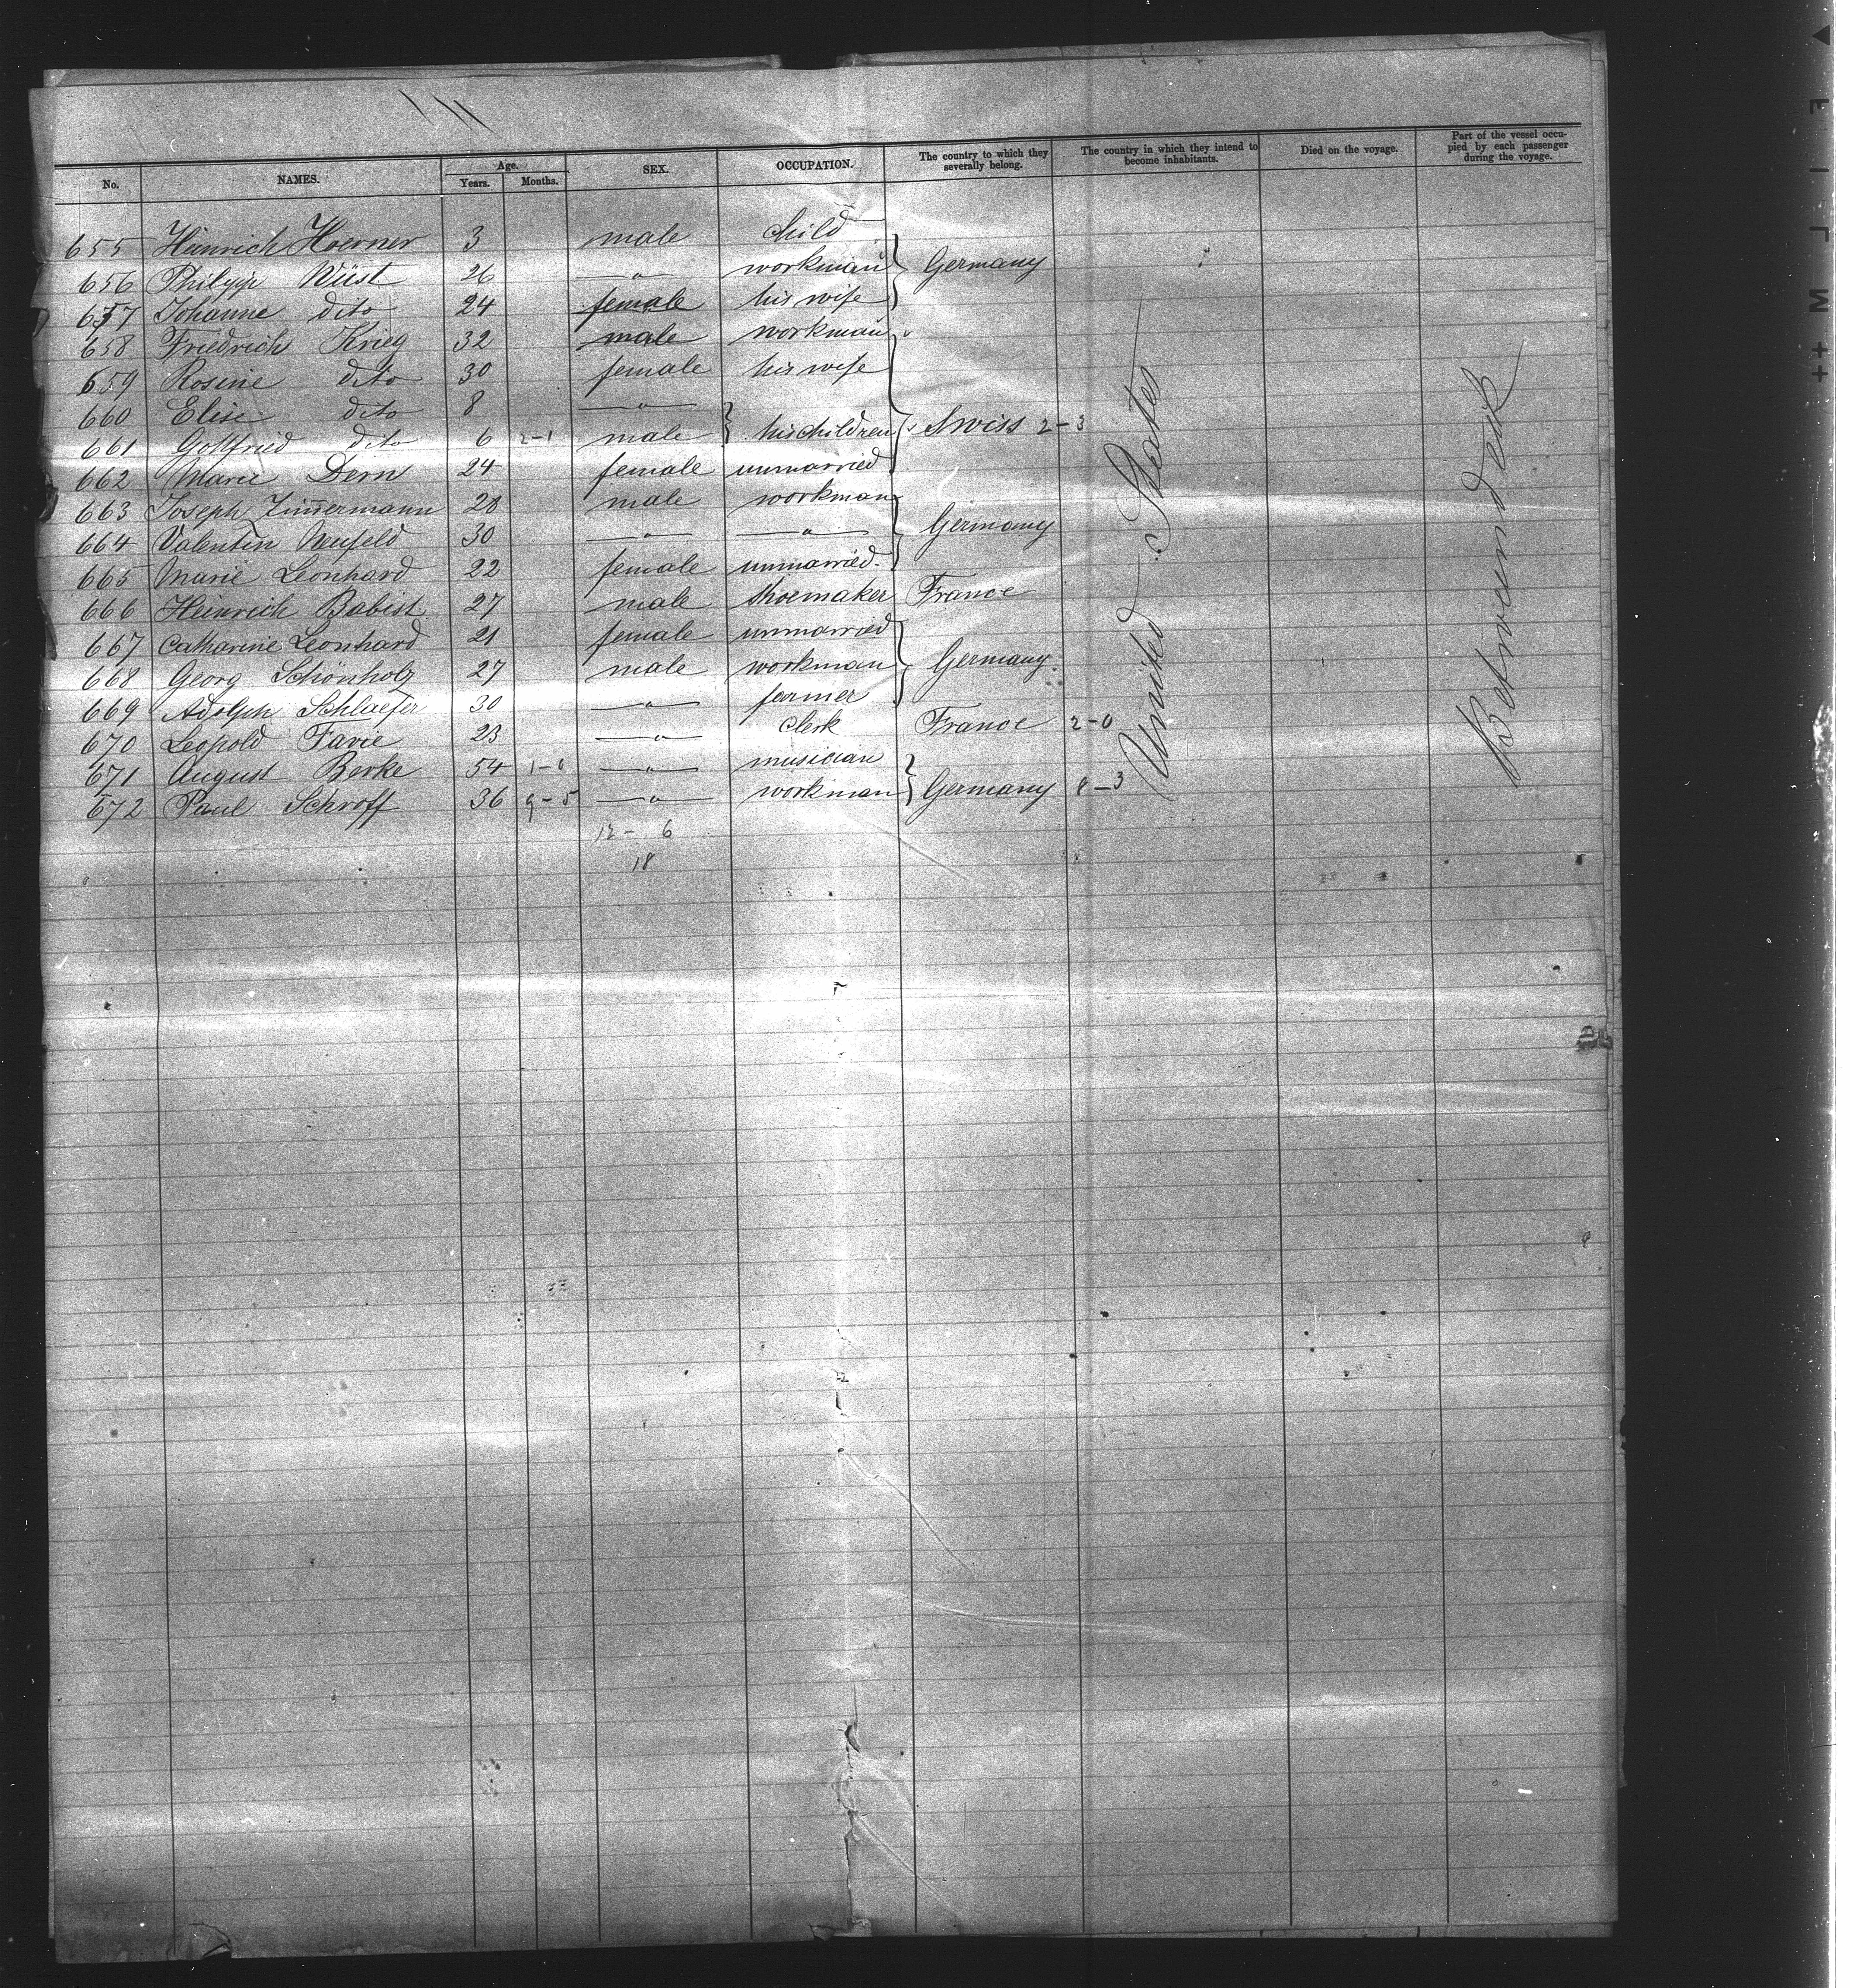 No. NAMES. Age. Years. Months. SEX. OCCUPATION. The country to which they severally belong. The country in which they intend to become inhabitants. Died on the voyage. Part of the vessel occupied by each passenger during the voyage.
655 Heinrich Hoerner 3 male child
656 Philipp Wüst 26 —"— workman Germany
657 Johanne dito 24 female his wife
658 Friedrich Krieg 32 male workman
659 Rosine dito 30 female his wife
660 Elise dito 8 —"—
661 Gottfried dito 6 2-1 male his children Swiss 2-3
662 Marie Dern 24 female unmarried
663 Joseph Zim̄ermann 28 male workman
664 Valentin Neufeld 30 —"— —"— Germany
665 Marie Leonhard 22 female unmarried
666 Heinrich Babist 27 male shoemaker France
667 Catharine Leonhard 21 female unmarried
668 Georg Schönholz 27 male workman Germany
669 Adolph Schlaefer 30 —"— farmer
670 Leopold Favre 23 —"— Clerk France 2-0
671 August Berke 54 1-0 —"— musician
672 Paul Schroff 36 9-5 —"— workman Germany 8-3
12- 6
18
United States
Between deck